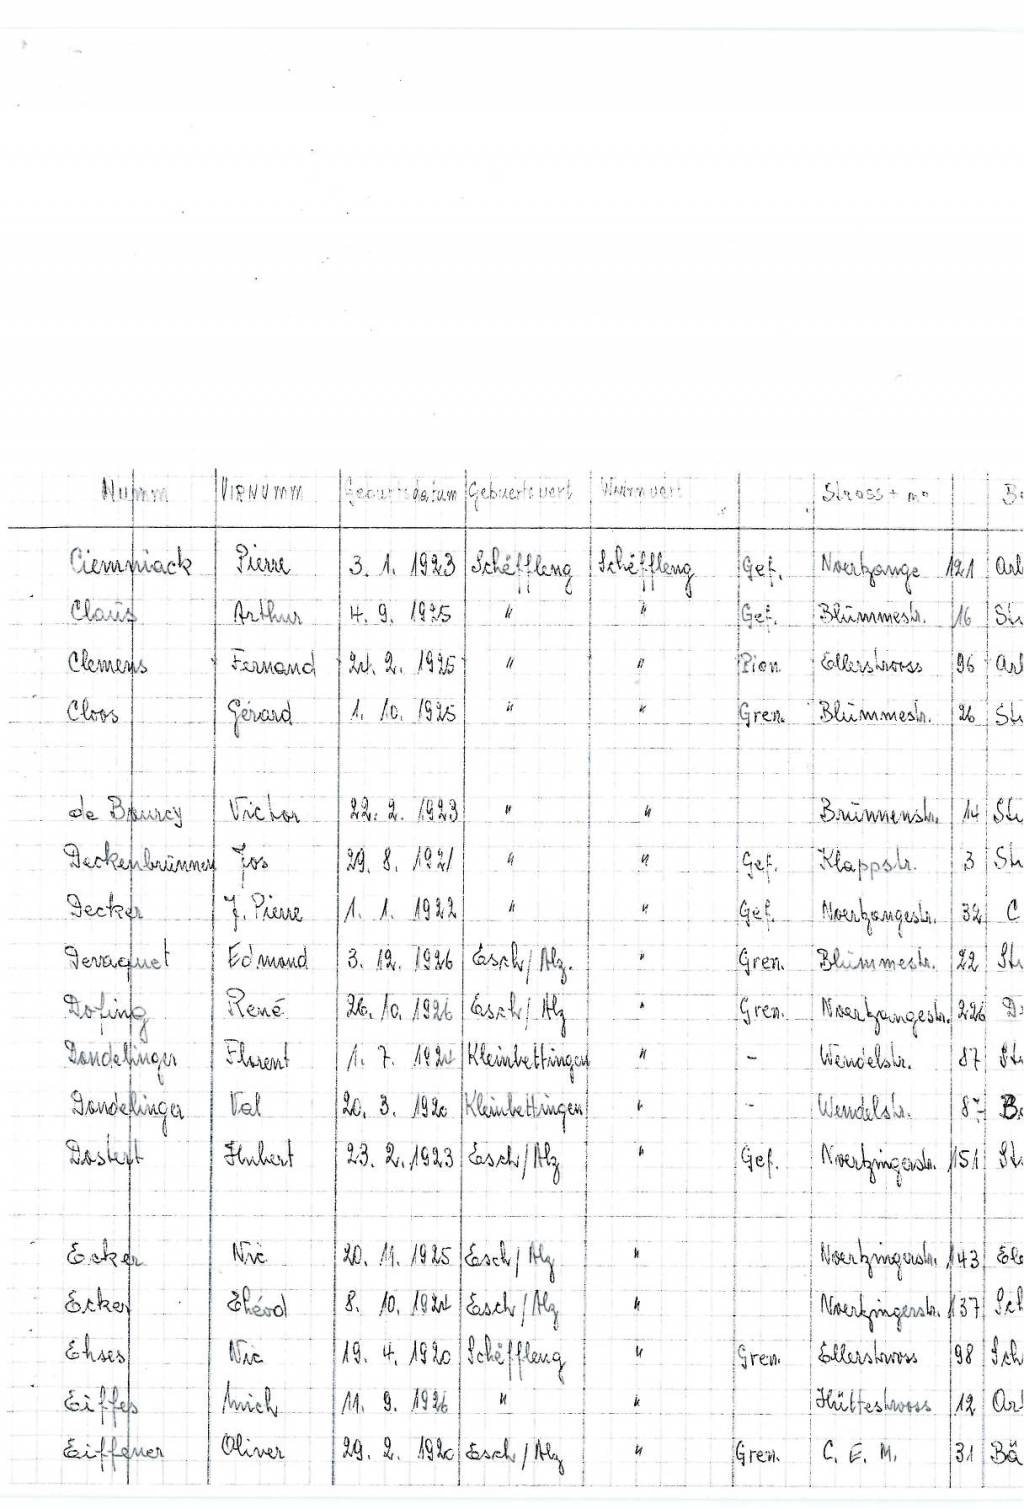 Numm Virnumm Geburtsdatum Geburtsuert Wunnuert Strooss + no
Ciemniack Pierre 3. 1. 1923 Schëffleng Schëffleng Gef. Noertzange 121 Arb
Claus Arthur 4. 9. 1925 " " Gef. Blummestr. 16 Stu
Clemens Fernand 24. 2. 1925 " " Pion. Ellerstrooss 96 Arb
Cloos Gérard 1. 10. 1925 " " Gren. Blummestr. 26 Stu
de Bourcy Victor 22. 2. 1923 " " Brunnenstr. 14 Stu
Deckenbrunnen Jos 29. 8. 1921 " " Gef. Klappstr. 3 Stu
Decker J. Pierre 1. 1. 1922 " " Gef. Noertzangestr. 32 C
Devaquet Edmond 3. 12. 1926 Esch/Alz. " Gren. Blummestr. 22 Stu
Dofing René 26. 10. 1926 Esch/Alz " Gren. Noertzangestr. 226 D
Dondelinger Florent 1. 7. 1924 Kleinbettingen " - Wendelstr. 87 Stu
Dondelinger Val 20. 3. 1920 Kleinbettingen " - Wendelstr. 87 B
Dostert Hubert 23. 2. 1923 Esch/Alz " Gef. Noertzingerstr. 151 Stu
Ecker Nic 20. 11. 1925 Esch/Alz " Noertzingerstr. 143 Ele
Ecker Théod 8. 10. 1924 Esch/Alz " Noertzingerstr. 137 Sch
Ehses Nic 19. 4. 1920 Schëffleng " Gren. Ellerstrooss 98 Sch
Eiffes Mich 11. 9. 1926 " " Hüttestrooss 12 Arb
Eiffener Oliver 29. 2. 1920 Esch/Alz " Gren. C. E. M. 31 Bä